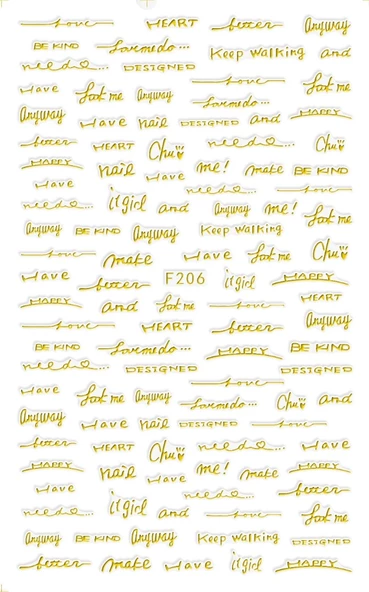 Love HEART better Anyway
BE KIND Lovemedo... Keep walking and
need... DESIGNED Love
Have Look me Anyway Lovemedo... Look me
Anyway Have nail DESIGNED and HAPPY
better HEART Chu need... Chu
HAPPY nail Have me! make BE KIND
Have need... Love
need... it girl and Anyway me! Look me
Anyway BE KIND Anyway Keep walking
Love make Have Look me Chu
Have better F206 it girl HAPPY
HAPPY and Look me Love HEART
Love HEART better Anyway
BE KIND Lovemedo... HAPPY BE KIND
need... DESIGNED Love DESIGNED
Have Look me Anyway Lovemedo... Chu and
Anyway Have nail DESIGNED Love
better HEART Chu need... Have
HAPPY nail Have me! make HAPPY
Have need... better
need... it girl and Love Look me
Anyway BE KIND Anyway Keep walking DESIGNED
better make Have it girl HAPPY